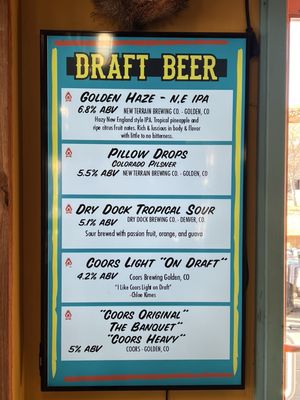 DRAFT BEER
GOLDEN HAZE - N.E IPA
6.8% ABV NEW TERRAIN BREWING CO. - GOLDEN, CO
Hazy New England style IPA. Tropical pineapple and
ripe citrus fruit notes. Rich & luscious in body & flavor
with little to no bitterness.
PILLOW DROPS
COLORADO PILSNER
5.5% ABV NEW TERRAIN BREWING CO. - GOLDEN, CO
DRY DOCK TROPICAL SOUR
5.1% ABV DRY DOCK BREWING CO. - DENVER, CO.
Sour brewed with passion fruit, orange, and guava
COORS LIGHT "ON DRAFT"
4.2% ABV Coors Brewing Golden, CO
"I Like Coors Light on Draft"
-Chloe Kimes
"COORS ORIGINAL"
THE BANQUET"
"COORS HEAVY"
5% ABV COORS - GOLDEN, CO